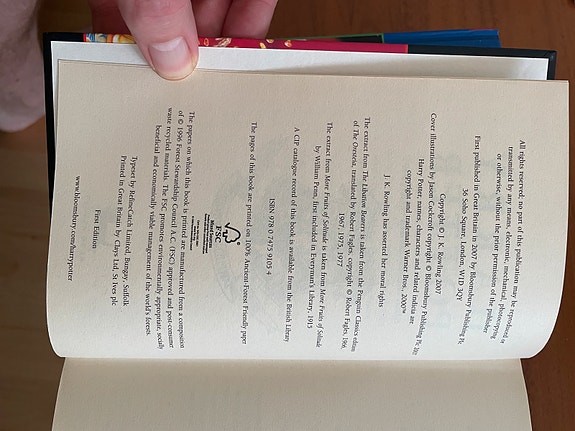 All rights reserved; no part of this publication may be reproduced or
transmitted by any means, electronic, mechanical, photocopying
or otherwise, without the prior permission of the publisher
First published in Great Britain in 2007 by Bloomsbury Publishing Plc
36 Soho Square, London, W1D 3QY
Copyright © J. K. Rowling 2007
Cover illustrations by Jason Cockcroft copyright © Bloomsbury Publishing Plc 2007
Harry Potter, names, characters and related indicia are
copyright and trademark Warner Bros., 2000™
J. K. Rowling has asserted her moral rights
The extract from The Libation Bearers is taken from the Penguin Classics edition
of The Oresteia, translated by Robert Fagles, copyright © Robert Fagles, 1966,
1967, 1975, 1977
The extract from More Fruits of Solitude is taken from More Fruits of Solitude
by William Penn, first included in Everyman's Library, 1915
A CIP catalogue record of this book is available from the British Library
ISBN 978 0 7475 9105 4
The pages of this book are printed on 100% Ancient-Forest Friendly paper
FSC
The papers on which this book is printed are manufactured from a composition
of © 1996 Forest Stewardship Council A.C. (FSC) approved and post-consumer
waste recycled materials. The FSC promotes environmentally appropriate, socially
beneficial and economically viable management of the world's forest.
Typeset by RefineCatch Limited, Bungay, Suffolk
Printed in Great Britain by Clays Ltd, St Ives plc
First Edition
www.bloomsbury.com/harrypotter